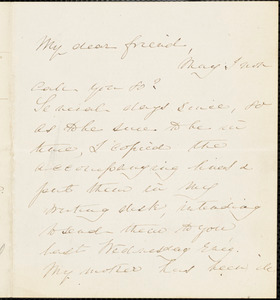 My dear friend,
May I not
call you so?
Several days since, so
as to be sure to be in
time, I copied the
accompanying lines &
put them in my
writing desk, intending
to send them to you
last Wednesday Eve'g.
My mother has been